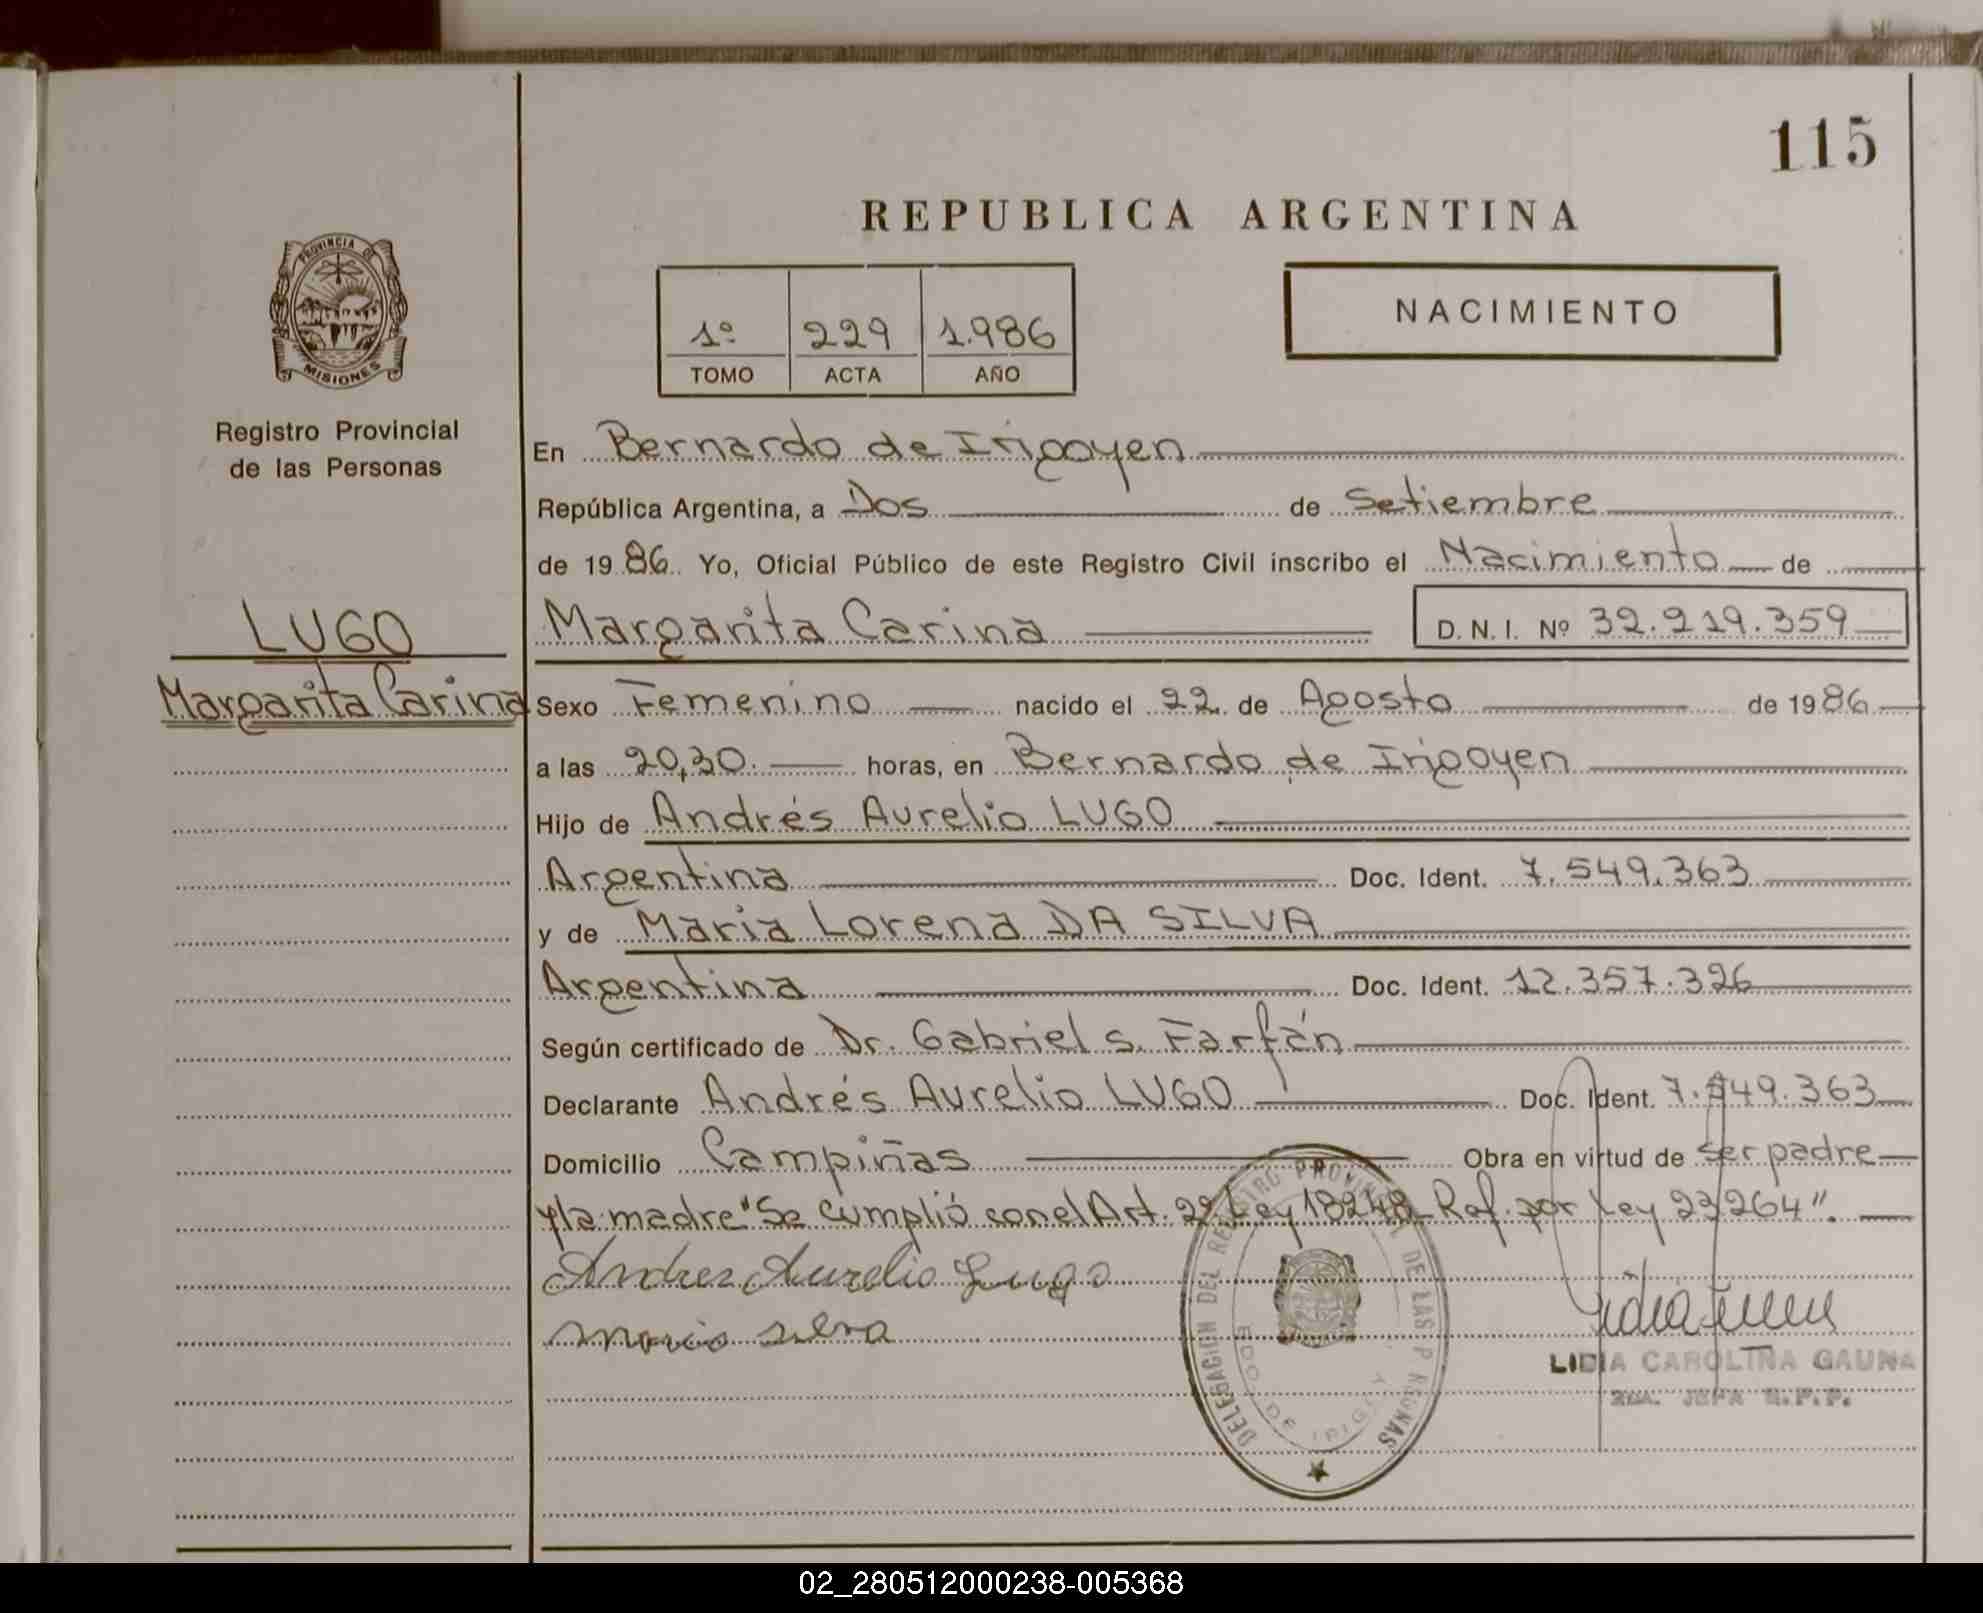 115
REPUBLICA ARGENTINA
PROVINCIA DE
MISIONES
Registro Provincial
de las Personas
1º 229 1.986
TOMO ACTA AÑO
NACIMIENTO
En Bernardo de Irigoyen
República Argentina, a Dos de Setiembre
de 1986 Yo, Oficial Público de este Registro Civil inscribo el Nacimiento de
LUGO
Margarita Carina
Margarita Carina D.N.I. Nº 32.219.359
Sexo Femenino nacido el 22 de Agosto de 1986
a las 20,30. horas, en Bernardo de Irigoyen
Hijo de Andrés Aurelio LUGO
Argentina Doc. Ident. 7.549.363
y de Maria Lorena DA SILVA
Argentina Doc. Ident. 12.357.326
Según certificado de Dr. Gabriel S. Farfán
Declarante Andrés Aurelio LUGO Doc. Ident. 7.549.363
Domicilio Campiñas Obra en virtud de ser padre
y la madre "Se cumplió con el Art. 2º Ley 18248 Ref. por Ley 23264".
Andres Aurelio Lugo
Maria Silva
DELEGACION DEL REGISTRO PROVINCIAL DE LAS PERSONAS
BDO. DE IRIGOY
LIDIA CAROLINA GAUNA
2da. JEFA R.P.P.
02_280512000238-005368